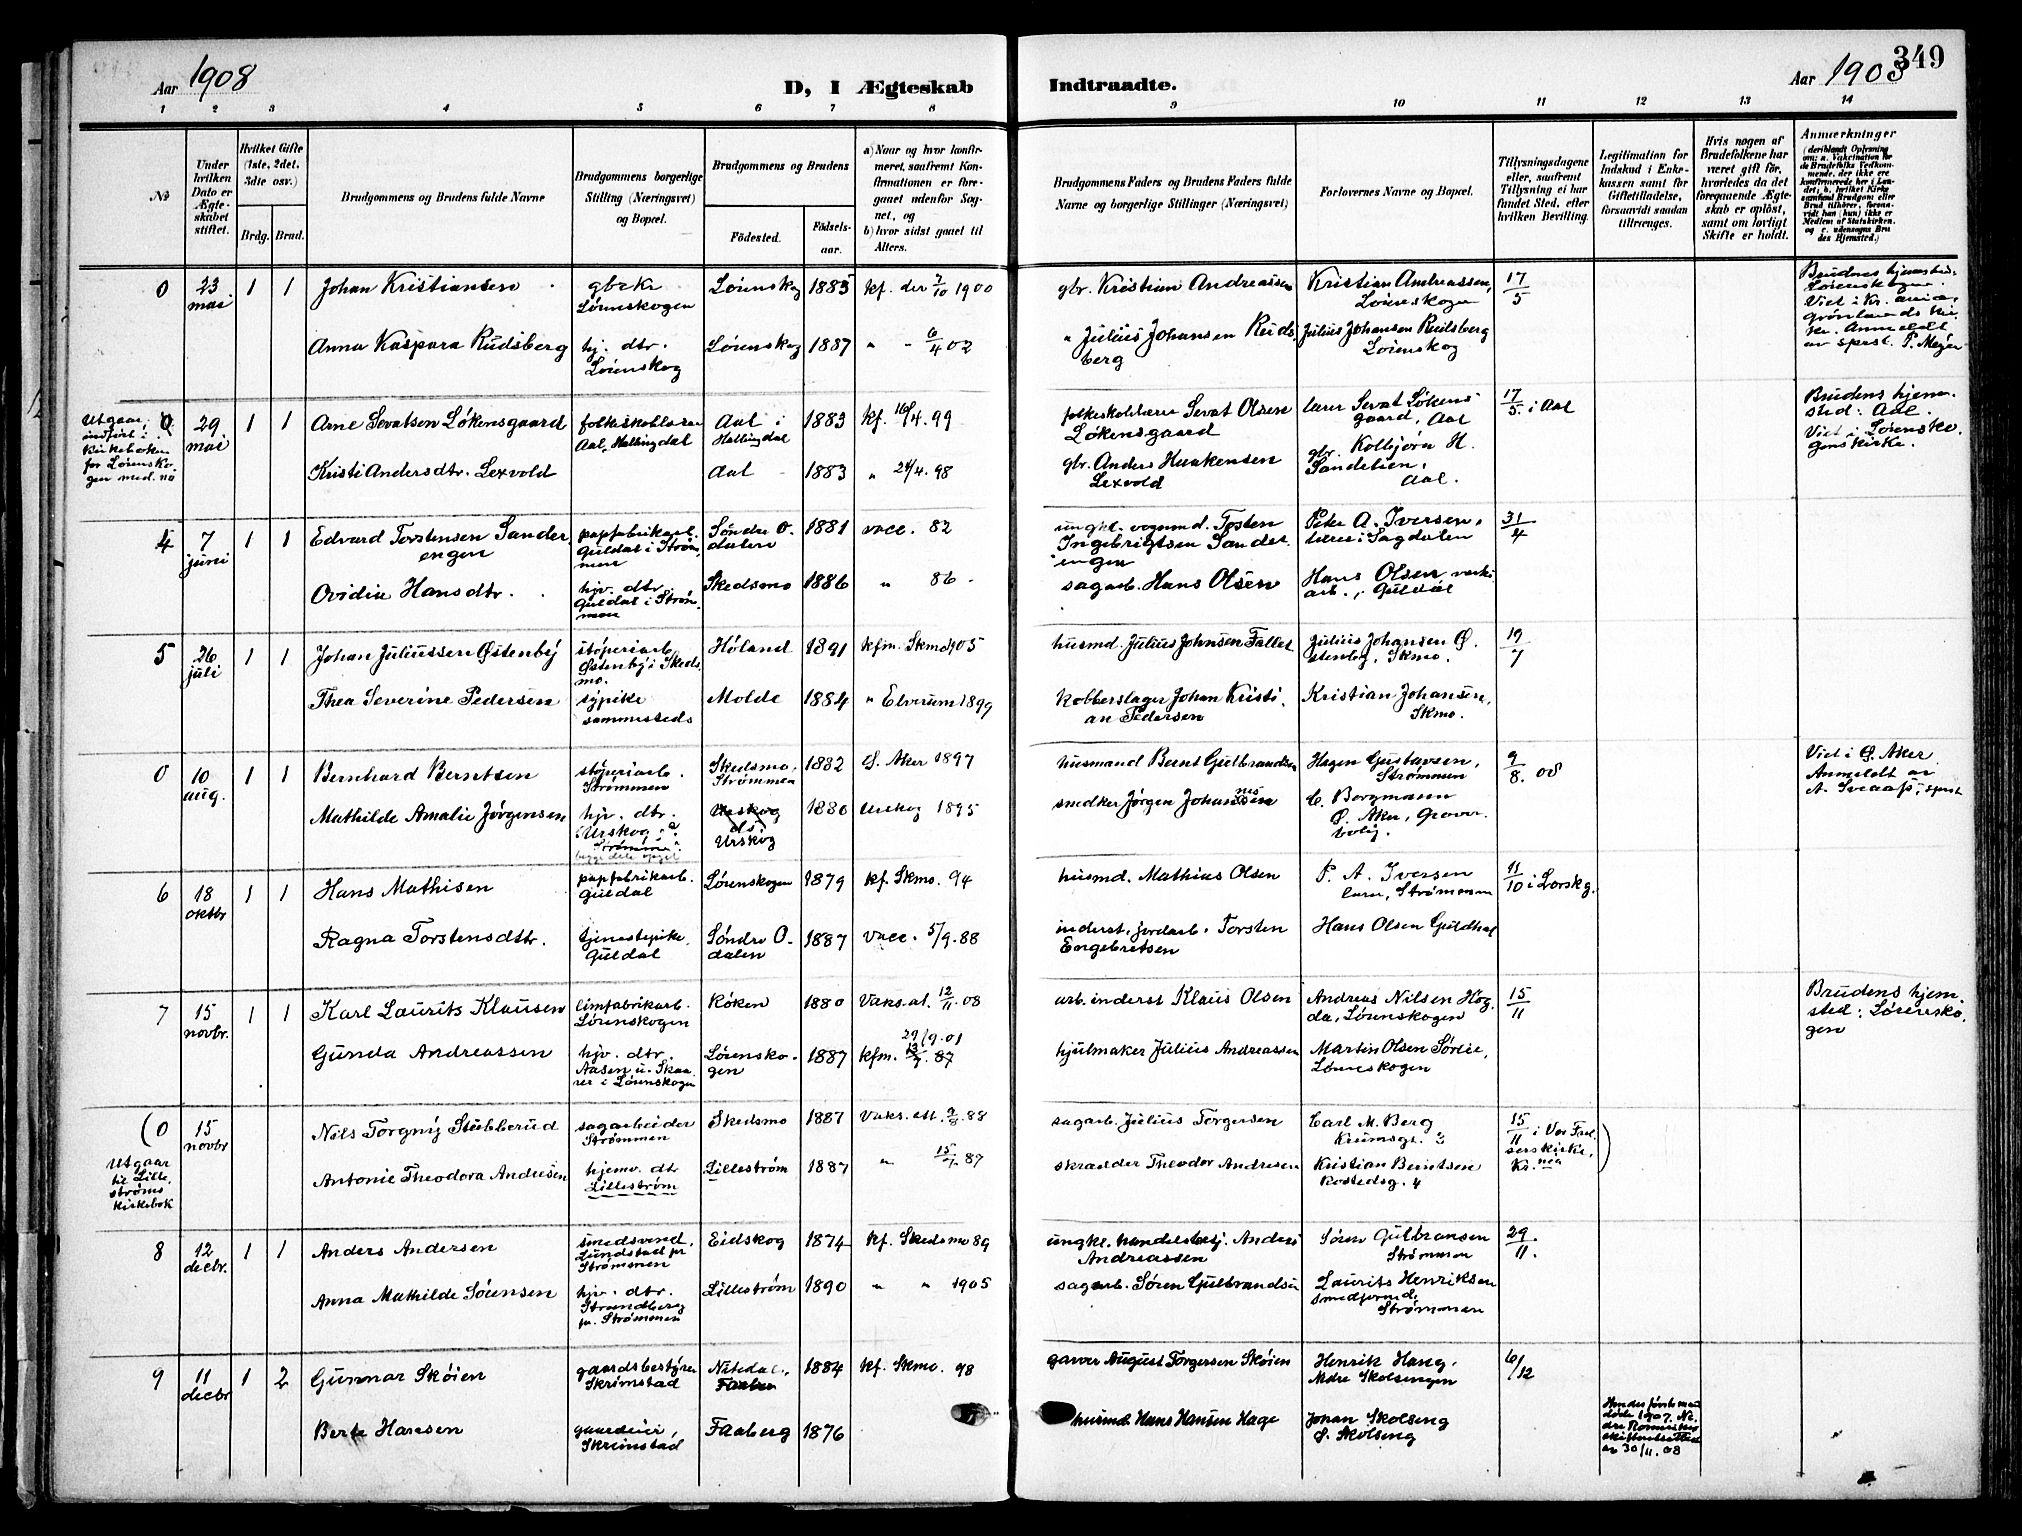 349
Aar 1908
D, I Ægteskab
Indtraadte.
Aar 190
1 2 3 4 5 6 7 8 9 10 11 12 13 14
No
Under hvilken Dato er Ægteskabet stiftet.
Hvilket Gifte (1ste, 2det, 3die osv.)
Brdg. Brud.
Brudgommens og Brudens fulde Navne
Brudgommens borgerlige Stilling (Næringsvei) og Bopæl.
Brudgommens og Brudens
Fødested.
Fødselsaar.
a) Naar og hvor konfirmeret, saafremt Konfirmationen er foregaaet udenfor Sognet, og
b) hvor sidst gaaet til Alters.
Brudgommens Faders og Brudens Faders fulde Navne og borgerlige Stillinger (Næringsvei)
Forlovernes Navne og Bopæl.
Tillysningsdagene eller, saafremt Tillysning ei har fundet Sted, efter hvilken Bevilling.
Legitimation for Indskud i Enkekassen samt for Giftetilladelse, forsaavidt saadan tiltrænges.
Hvis nogen af Brudefolkene har været gift før, hvorledes da det foregaaende Ægteskab er opløst, samt om lovligt Skifte er holdt.
Anmærkninger (deriblandt Oplysning om: a. Vaccination for de Brudefolks Vedkommende, der ikke ere konfirmerede her i Landet; b. hvilket Kirkesamfund Brudgom eller Brud tilhører, forsaavidt han (hun) ikke er Medlem af Statskirken, og c. udensogns Brudes Hjemsted.)
0 23 mai 1 1 Johan Kristiansen gbrka Lørenskogen Lørenskog 1885 kf. der 7/10 1900 gbr. Kristian Andreassen Kristian Andreassen, Lørenskogen 17/5 Brudens hjemsted: Lørenskogen. Viet i Kr. ania, Grønlands kirke. Anmeldt av sprst. P. Meyer
Anna Kaspara Rudsberg hj. dtr. Lørenskog Lørenskog 1887 " - 6/4 02 " Julius Johansen Rudsberg Julius Johansen Rudsberg Lørenskog
Utgaar, indført i kirkeboken for Lørenskogen med. no 0 29 mai 1 1 Arne Sevatsen Løkensgaard folkeskolelærer Aal, Hallingdal Aal i Hallingdal 1883 kf. 16/4. 99 folkeskolelærer Sevat Olsen Løkensgaard lærer Sevat Løkensgaard, Aal 17/5. i Aal Brudens hjemsted: Aal. Viet i Lørenskogens kirke.
Kristi Andersdtr. Lexvold Aal 1883 " 24/4. 98 gbr. Anders Haakensen Lexvold gbr. Kolbjørn H. Sandelien, Aal.
4 7 juni 1 1 Edvard Torstensen Sanderengen papfabrikarb. Guldal i Strømmen Søndre Odalen 1881 vacc. 82 ungkl. vognmd. Tosten Ingebrigtsen Sanderengen Peter A. Iversen, lærer i Sagdalen 31/4
Ovidie Hansdtr. hjv. dtr. Guldal i Strømmen Skedsmo 1886 " 86 sagarb. Hans Olsen Hans Olsen, verksarb., Guldal
5 26 juli 1 1 Johan Juliussen Østenby støperiarb. Østenby i Skedsmo. Høland 1891 kfm. Skmo 1905 husmd. Julius Johnsen Fallet Julius Johansen Østenby, Skmo. 19/7
Thea Severine Pedersen sypike sammesteds Molde 1884 " Elverum 1899 Kobberslager Johan Kristian Pedersen Kristian Johansen, Skmo.
0 10 aug. 1 1 Bernhard Berntsen støperiarb. Strømmen Skedsmo, Strømmen 1882 Ø. Aker 1897 husmand Bernt Gulbrandsen Hagen Gustavsen, Strømmen 9/8. 08 Viet i Ø. Aker. Anmeldt av A. Sveaas, sprst
Mathilde Amalie Jørgensen hjv. dtr. Urskog Urskog 1880 Urskog 1895 snedker Jørgen Johannesen C. Bergmann Ø. Aker, Graverbolig.
6 18 oktbr 1 1 Hans Mathisen papfabrikarb. Guldal Lørenskogen 1879 kf. Skmo. 94 husmd. Mathias Olsen P. A. Iversen lærer, Strømmen 11/10 i Lørskg.
Ragna Torstensdtr. tjenestepike, Guldal Søndre Odalen 1887 vacc. 5/9. 88 inderst, jordarb. Torsten Engebretsen Hans Olsen Guldhal
7 15 novbr. 1 1 Karl Laurits Klausen limfabrikarb. Lørenskogen Røken 1880 Vaks.at. 12/11. 08 arb. inderst Klaus Olsen Andreas Nilsen Hogda, Lørenskogen 15/11 Brudens hjemsted: Lørenskogen
Gunda Andreassen hjv. dtr. Aasen u. Skaarer i Lørenskogen Lørenskogen 1887 kfm. 29/9.01 hjulmaker Julius Andreassen Martin Olsen Sørlie, Lørenskogen
(0 Utgaar til Lillestrøms kirkebok 15 novbr Nils Torgny Stubberud sagarbeider Strømmen Skedsmo 1887 Vaks. att. 9/8. 88 sagarb. Julius Torgersen Carl M. Berg Krumsgt. 15/11 i Vor Frelserskirke, Kr.nia)
Antonie Theodora Andresen hjemv. dtr Lillestrøm Lillestrøm 1887 " 15/7. 87 skrædder Theodor Andresen Kristian Berntsen Rostedsg. 4
8 12 decbr. 1 1 Anders Andersen smedsvend, Lundstad pr Strømmen Eidskog 1874 kf. Skedsmo 89 ungkl. handelsbesj. Anders Andreassen Søren Gulbransen Strømmen 29/11.
Anna Mathilde Sørensen hjv. dtr. Strandberg pr. Strømmen Lillestrøm 1890 " " 1905 sagarb. Søren Gulbrandsen Laurits Henriksen smedformd, Strømmen
9 11 decbr 1 2 Gunnar Skøien gaardsbestyrer Skrimstad Nitedal, 1884 kf. Skmo. 98 garver August Torgersen Skøien Henrik Haug, Ndre Skolsengen 6/12
Berte Hansen gaardeier, Skrimstad Faaberg 1876 husmd. Hans Hansen Hage Johan Skolseng S. Skolseng Hendes første mand døde 1907. Nedre Romerikes skifteretsattest av 30/11. 08